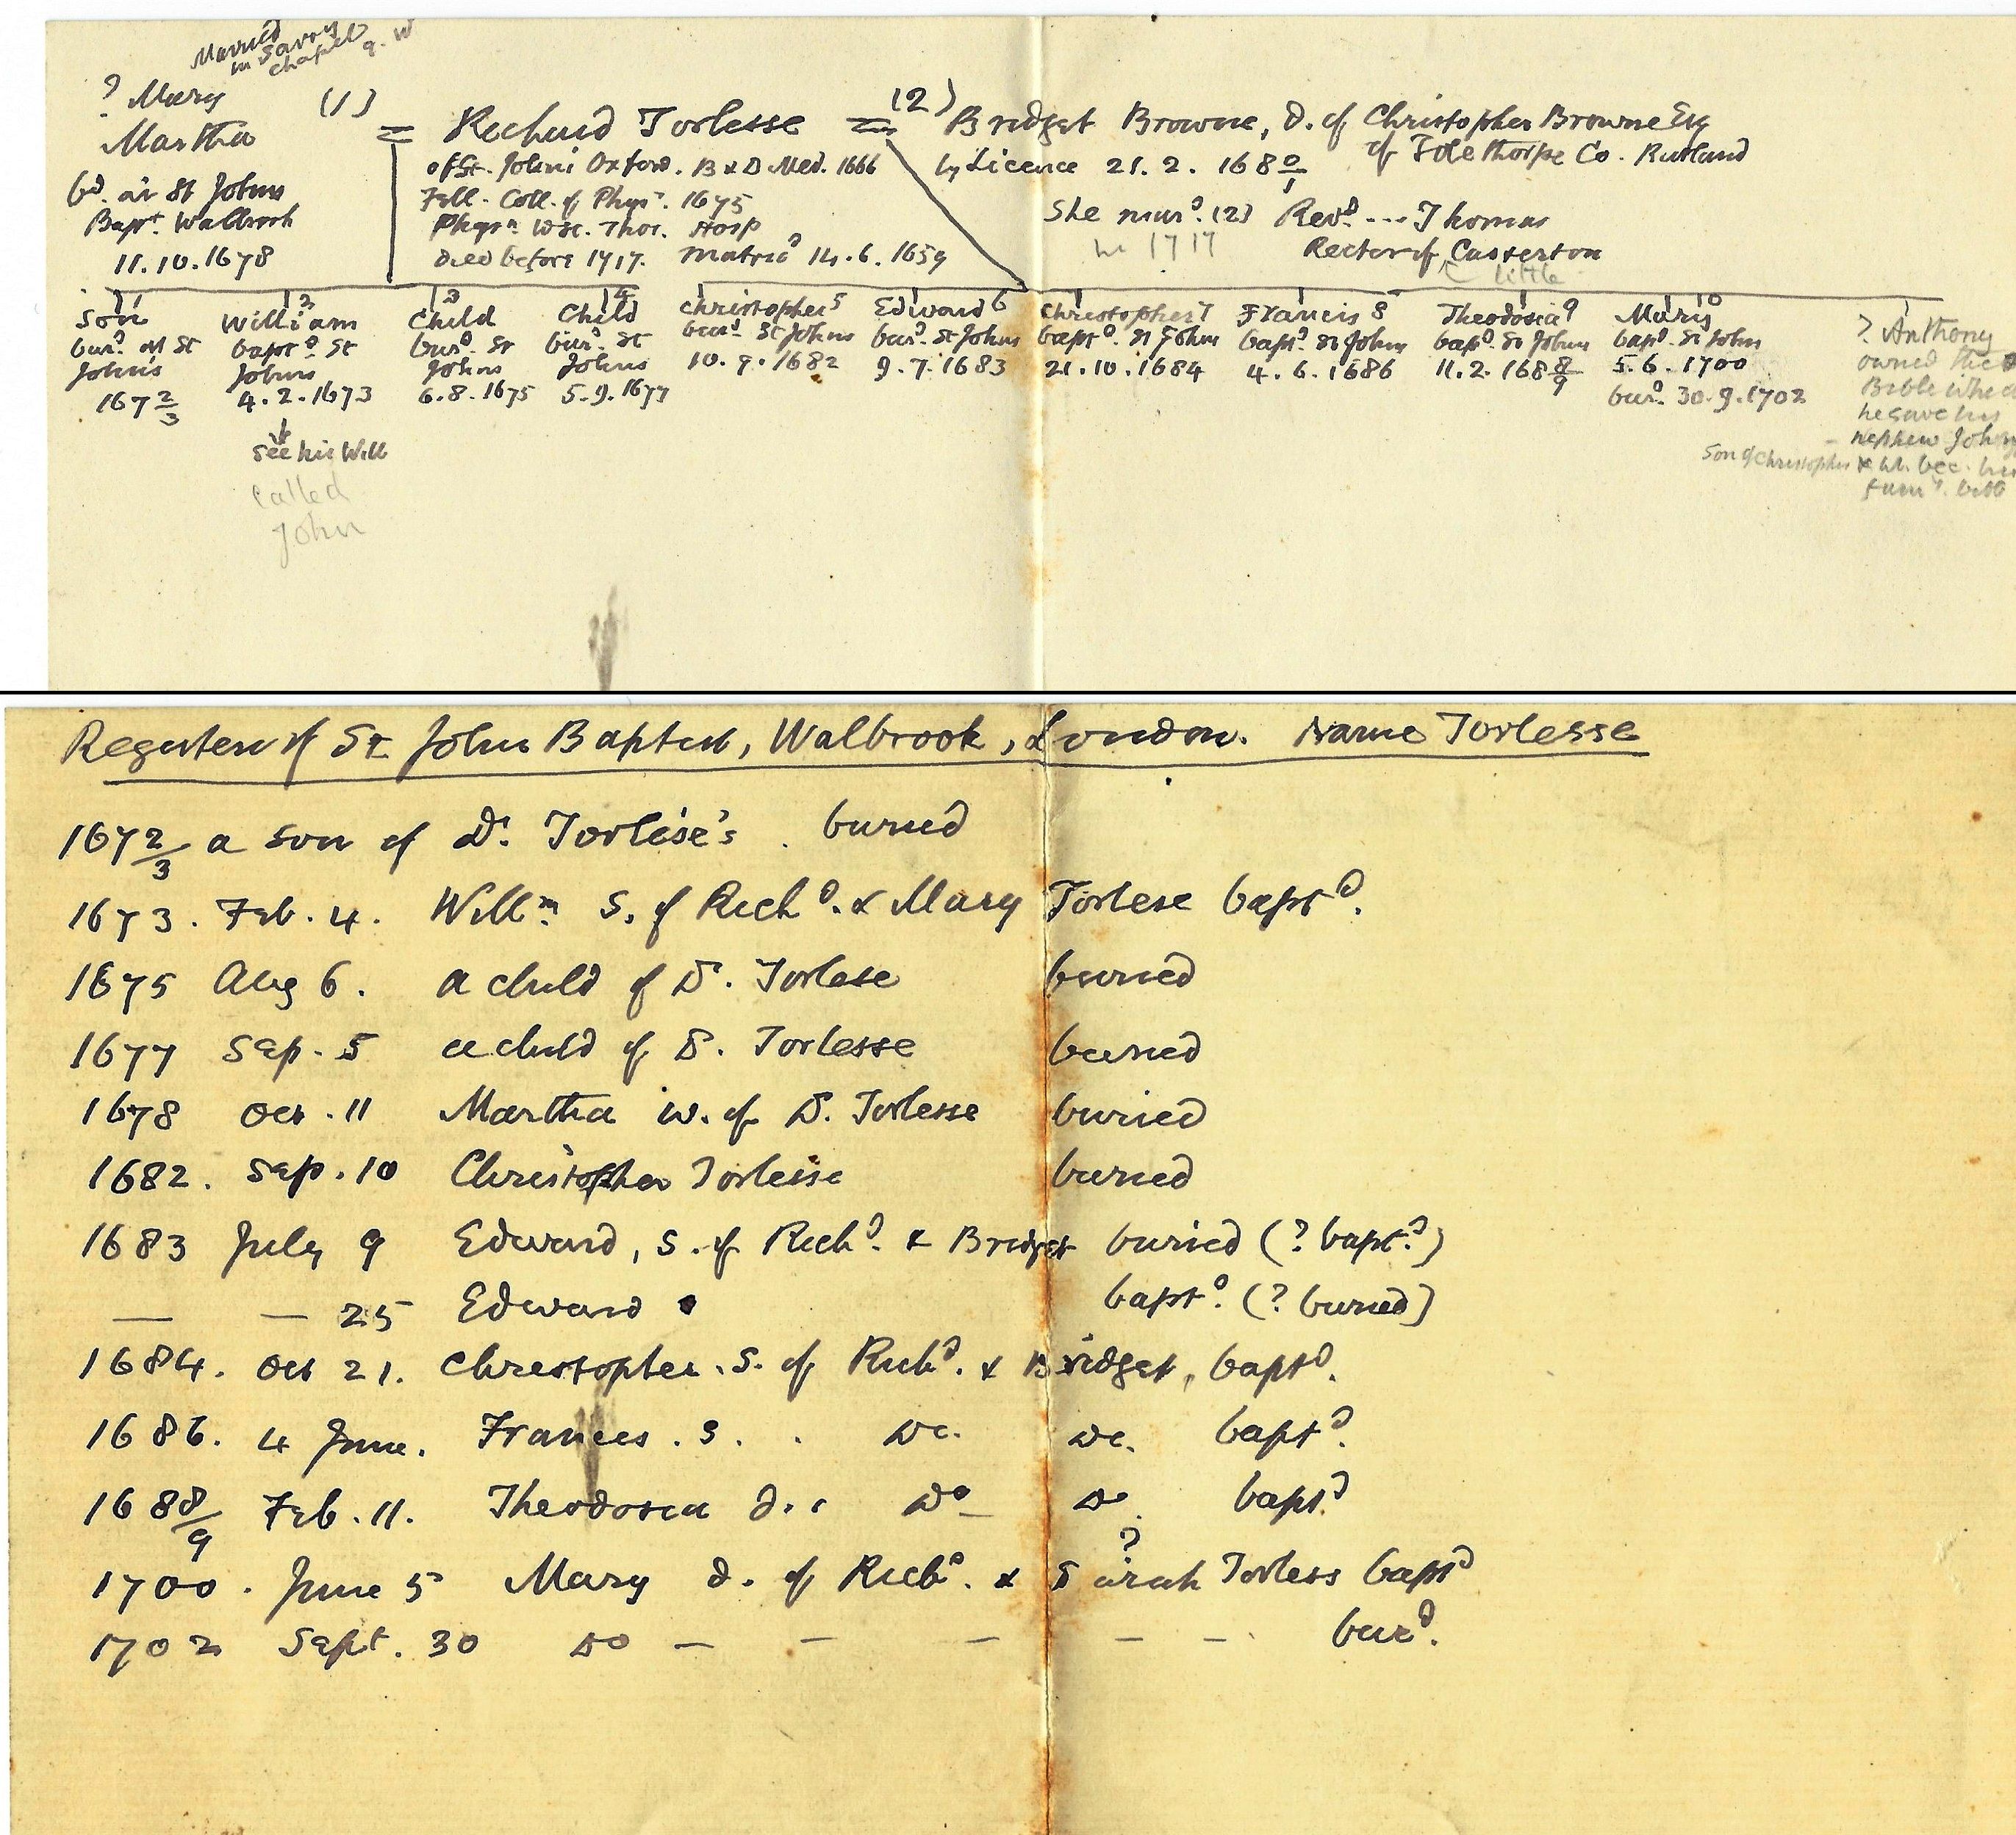 Married
in Savoy
chapel q.W
? Mary (1)
Martha
bd. at St Johns
Bapt. Walbrook
11.10.1678
= Richard Torlesse =
of St. Johns Oxford. B & D Med. 1666
Fell. Coll. of Physns. 1675
Physn. Thos. Hosp
Died before 1717. Matricd 14.6.1659
(2) Bridget Browne, d. of Christopher Browne Esq
of Tolethorpe Co. Rutland
by Licence 21.2.168 0/1
She mard. (2) Revd. --- Thomas
in 1717
Rector of Casterton
little
Son 1
burd. at St
Johns
167 2/3
William 2
baptd. St
Johns
4.2.1673
see his Will
called
John
Child 3
burd. St
Johns
6.8.1675
Child 4
burd. St
Johns
5.9.1677
Christopher 5
burd. St Johns
10.9.1682
Edward 6
burd. St Johns
9.7.1683
Christopher 7
baptd. St Johns
21.10.1684
Francis 8
baptd. St Johns
4.6.1686
Theodosia 9
bapd. St Johns
11.2.168 8/9
Mary 10
bapd. St John
5.6.1700
burd. 30.9.1702
? Anthony
owned the
Bible
he gave his
nephew John
son of Christopher & wh. bec. his
Registers of St John Baptist, Walbrook, London. Name Torlesse
167 2/3 a son of Dr. Torlese's . buried
1673. Feb. 4. Willm S. of Richd. & Mary Torlese baptd.
1675 Aug 6. a child of Dr. Torlese buried
1677 Sep. 5 a child of Dr. Torlesse buried
1678 Oct. 11 Martha w. of Dr. Torlesse buried
1682. Sep. 10 Christopher Torlesse buried
1683 July 9 Edward, S. of Richd. & Bridget buried (? baptd.)
— — 25 Edward baptd. (? buried)
1684. Oct 21. Christopher. S. of Richd. & Bridget, baptd.
1686. 4 June. Frances. S. . Do. Do. baptd.
168 8/9 Feb. 11. Theodosia d. . Do Do. baptd
1700. June 5 Mary d. of Richd. & ? Sarah Torless baptd
1702 Sept. 30 Do — — — — — burd.